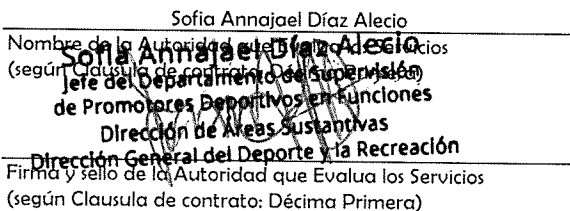 Sofia Annajael Díaz Alecio
Nombre de la Autoridad que Evalua los Servicios
Sofia Annajael Díaz Alecio
(según Clausula de contrato: Décima Primera)
Jefe del Departamento de Supervisión
de Promotores Deportivos en Funciones
Dirección de Áreas Sustantivas
Dirección General del Deporte y la Recreación
Firma y sello de la Autoridad que Evalua los Servicios
(según Clausula de contrato: Décima Primera)